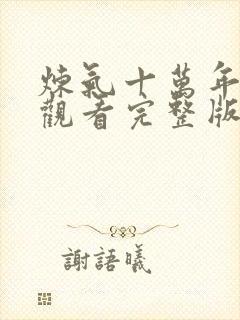 煉氣十萬年
觀看完整版
謝語曦